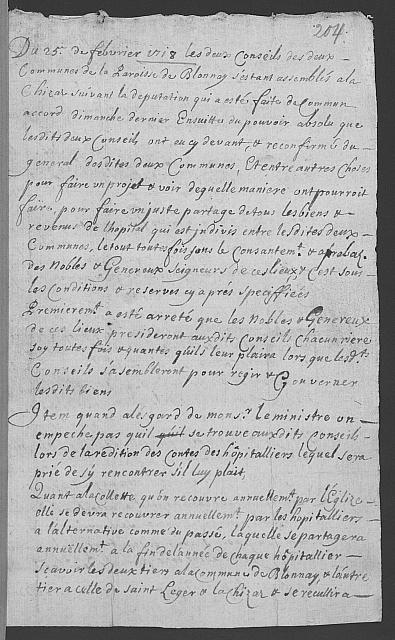 204.
Du 25.e de février 1718 les deux Conseils des deux
Communes de la Paroisse de Blonnay s'estant assemblés a la
Chizaz suivant la deputation qui a esté faite de Commun
accord dimanche dernier Ensuitte du pouvoir absolu que
lesdits deux Conseils ont eu cy devant, & reconfirmé du
general desdites deux Communes, Et entre autres choses
pour faire un projet & voir de quelle maniere ont pourroit
faire, pour faire un juste partage de tous les biens &
revenus de l'hopital qui est indivis entre lesdites deux
Communes, le tout toutesfois sous le Consantem.t & aprobaõn
des Nobles & Genereux Seigneurs de ces lieux & c'est sous
les Conditions & reserves cy aprés speciffiées
Premierem.t a esté arreté que les Nobles & Genereux
de ces lieux presideront auxdits Conseils chacun riere
soy toutes fois & quantes qu'ils leur plaira lors que lesd.ts
Conseils s'assembleront pour regir & Gouverner
lesdits biens
Item quand a l'esgard de mons.r le ministre on
empeche pas quil se trouve auxdits Conseils
lors de la rédition des contes des hôpitalliers lequel sera
prié de s'y rencontrer s'il luy plait,
Quant a la collette qu'on recouvre annuellem.t par l'Eglize
elle se devra recouvrer annuellem.t par les hôpitalliers
a l'alternative comme du passé, laquelle se partagera
annuëllem.t a la fin de l'année de chaque hôpitallier
scavoir les deux tiers a la commune de Blonnay & l'autre
tier a celle de saint Leger & la Chizaz & se recullira